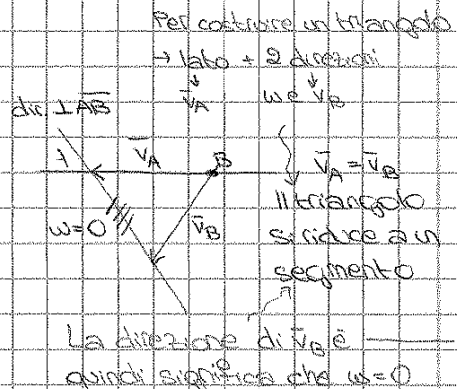 Per costruire un triangolo
→ 1 lato + 2 direzioni
v̄A
ω e v̄B
dir. ⊥ AB
v̄A
B
v̄A = v̄B
Il triangolo
ω=0
v̄B
si riduce a un
segmento
La direzione di v̄B è
quindi significa che ω=0